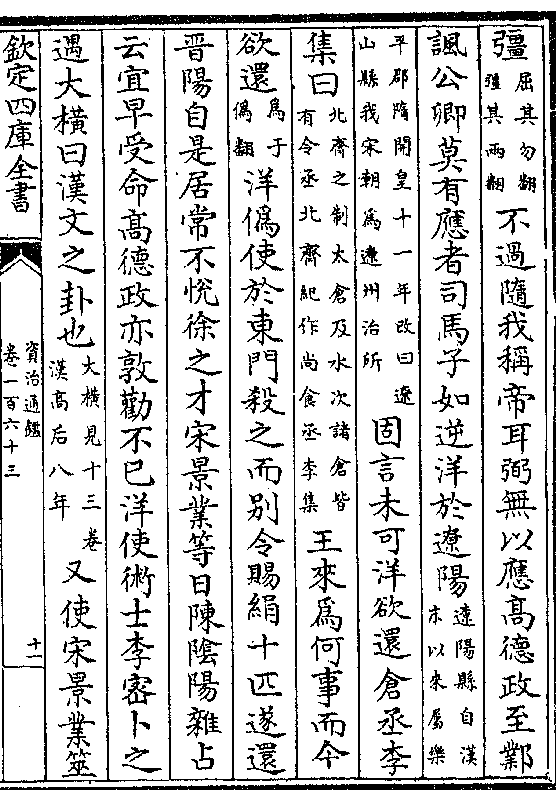 彊屈其勿翻彊其兩翻不過隨我稱帝耳弼無以應高德政至鄴
諷公卿莫有應者司馬子如逆洋於遼陽遼陽縣自漢末以來屬樂
平郡隋開皇十一年改曰遼山縣我宋朝爲遼州治所固言未可洋欲還倉丞李
集曰北齊之制太倉及水次諸倉皆有令丞北齊紀作尚食丞李集王來爲何事而今
欲還爲于僞翻洋僞使於東門殺之而别令賜絹十匹遂還
晉陽自是居常不悅徐之才宋景業等日陳隂陽雜占
云宜早受命高德政亦敦勸不已洋使術士李密卜之
遇大橫曰漢文之卦也大橫見十三卷漢高后八年又使宋景業筮
欽定四庫全書
資治通鑑
卷一百六十三
十一